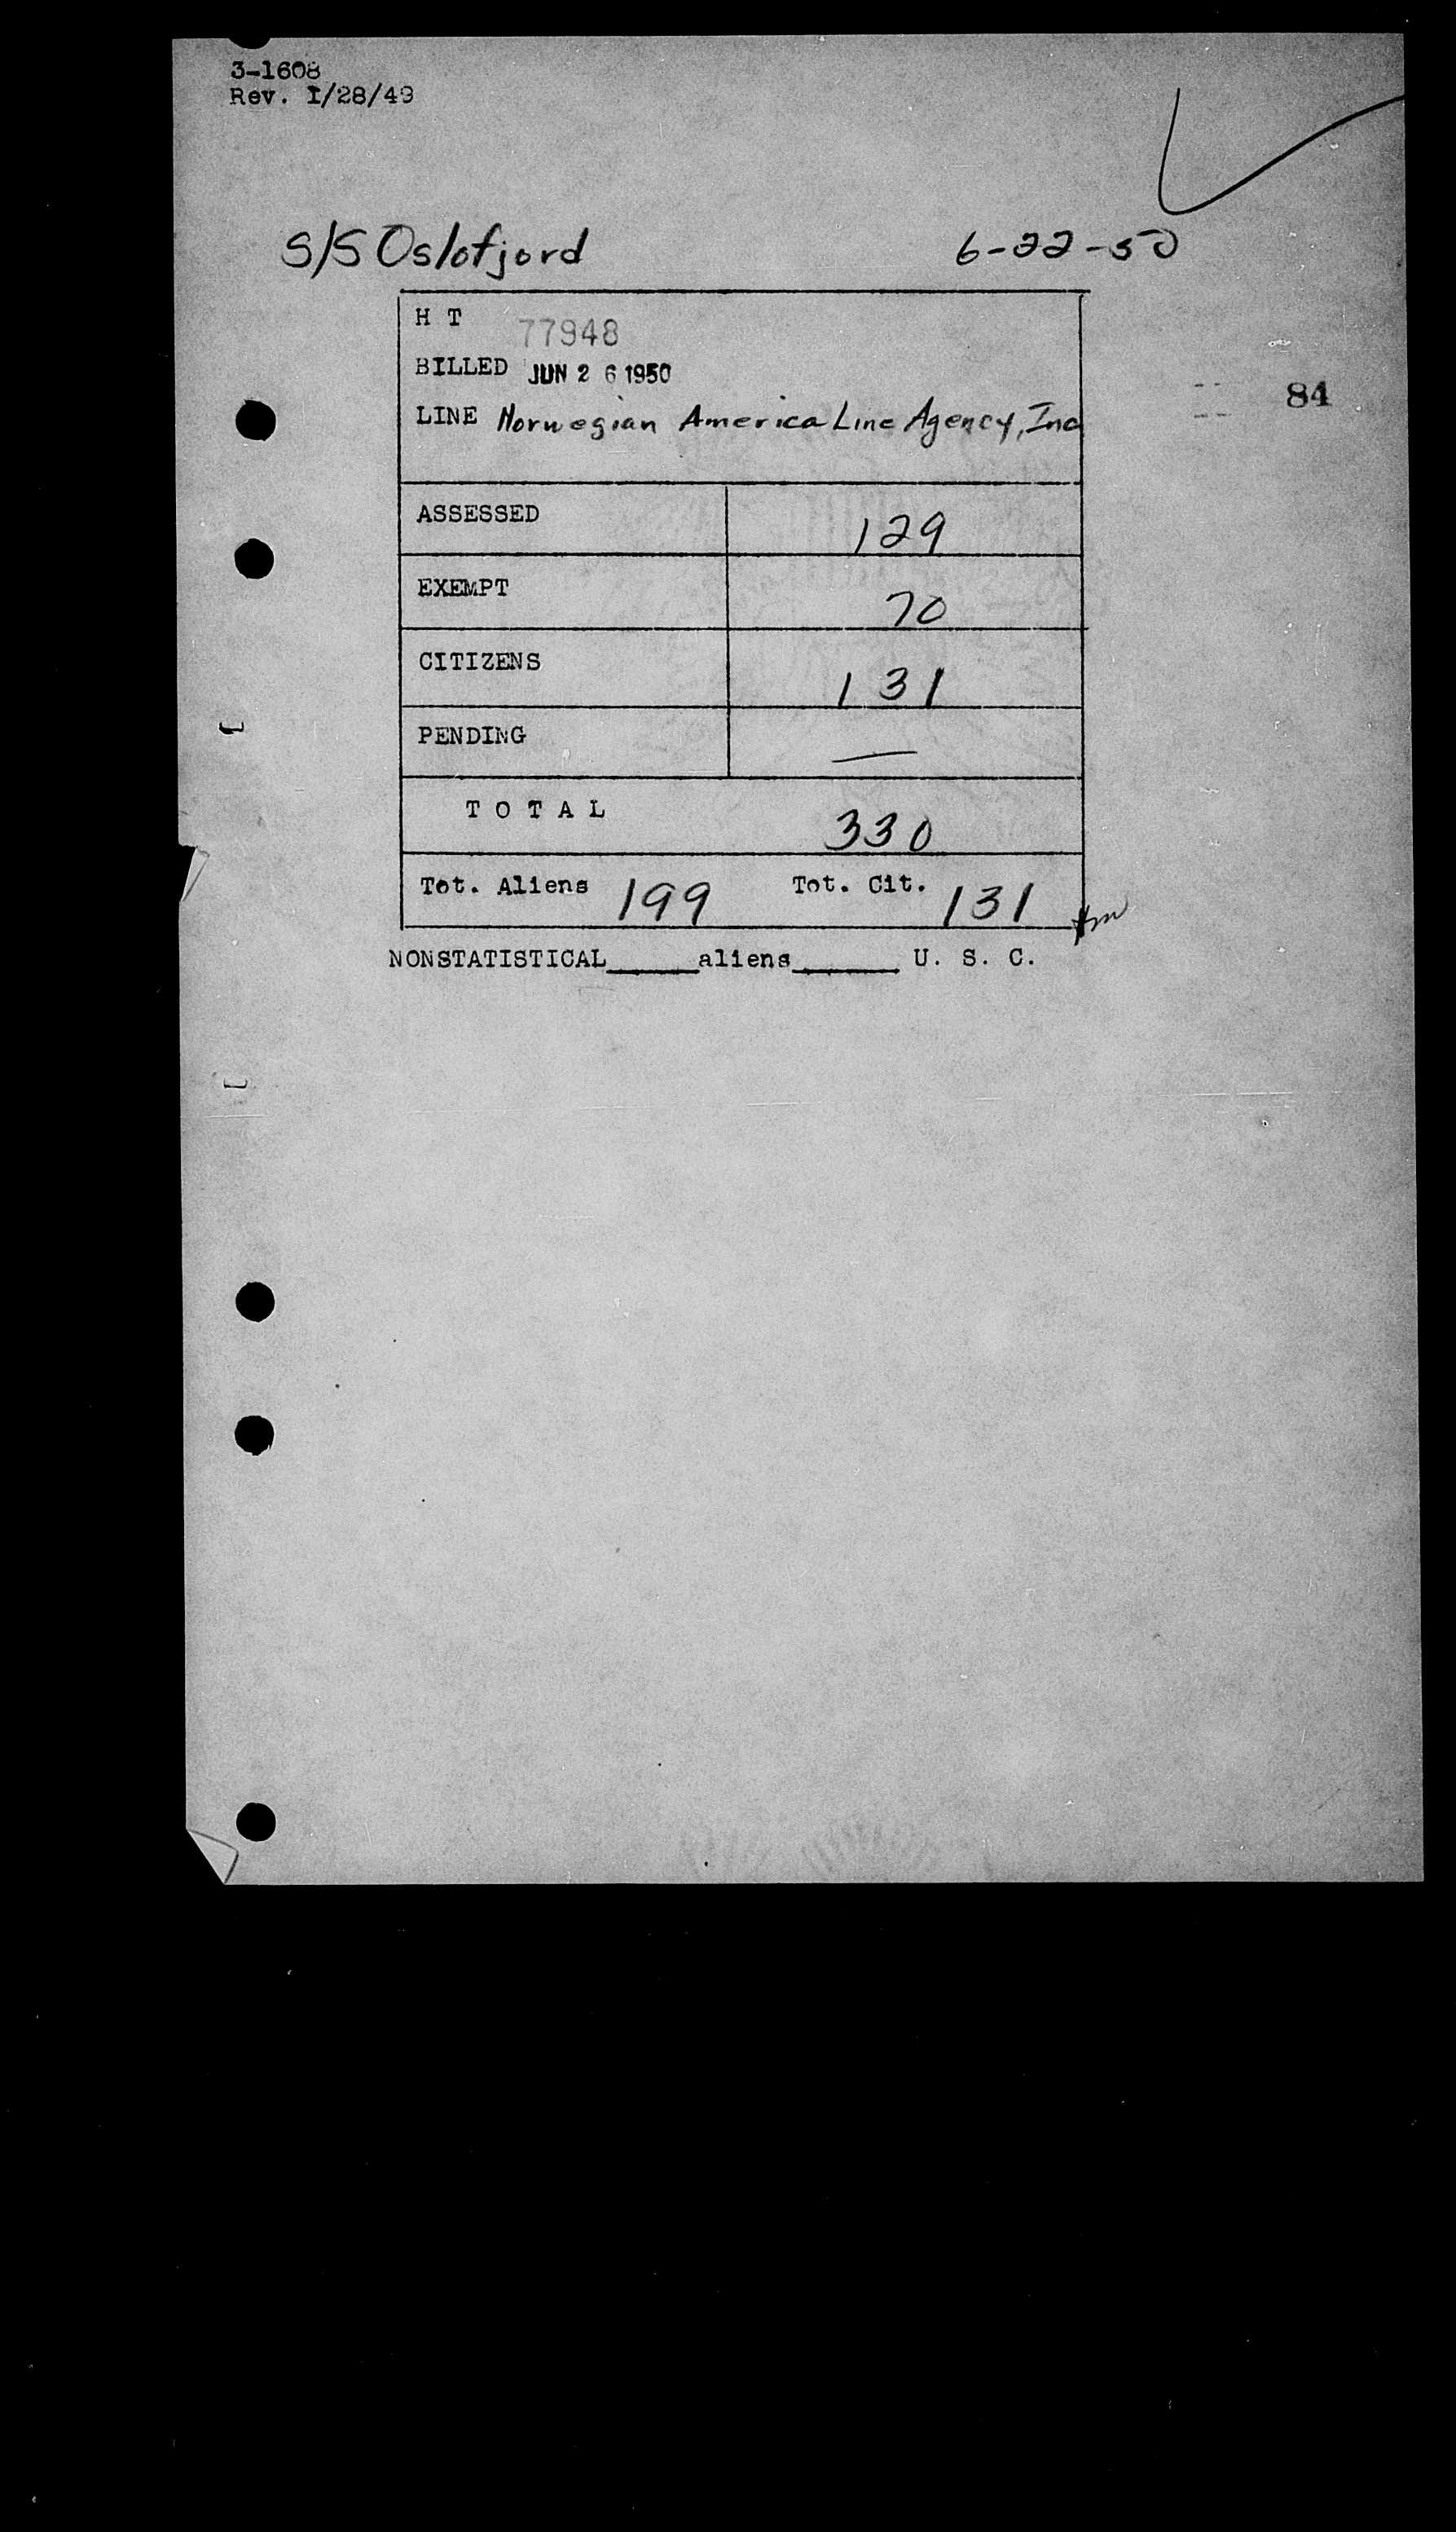 3-1608
Rev. 1/28/49
S/S Oslofjord 6-22-50
H T 77948
BILLED JUN 26 1950
84
LINE Norwegian America Line Agency, Inc
ASSESSED 129
EXEMPT 70
CITIZENS 131
PENDING —
T O T A L 330
Tot. Aliens 199 Tot. Cit. 131
NONSTATISTICAL______aliens_______ U. S. C.